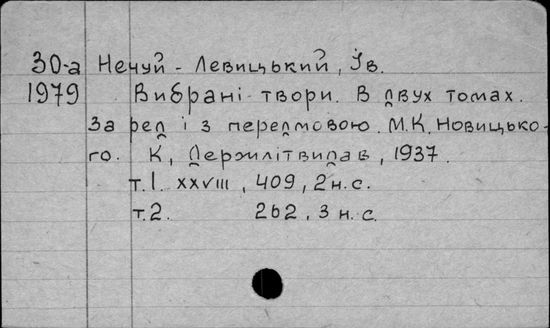 30-а Нечуй - Левицький, Ів.
1979 Вибрані твори. В двух томах.
За ред і з передмовою М.К. Новицько-
го. К, Держлітвидав, 1937.
т.1. XXVIII, 409, 2 н. с.
т.2. 262, 3 н. с.